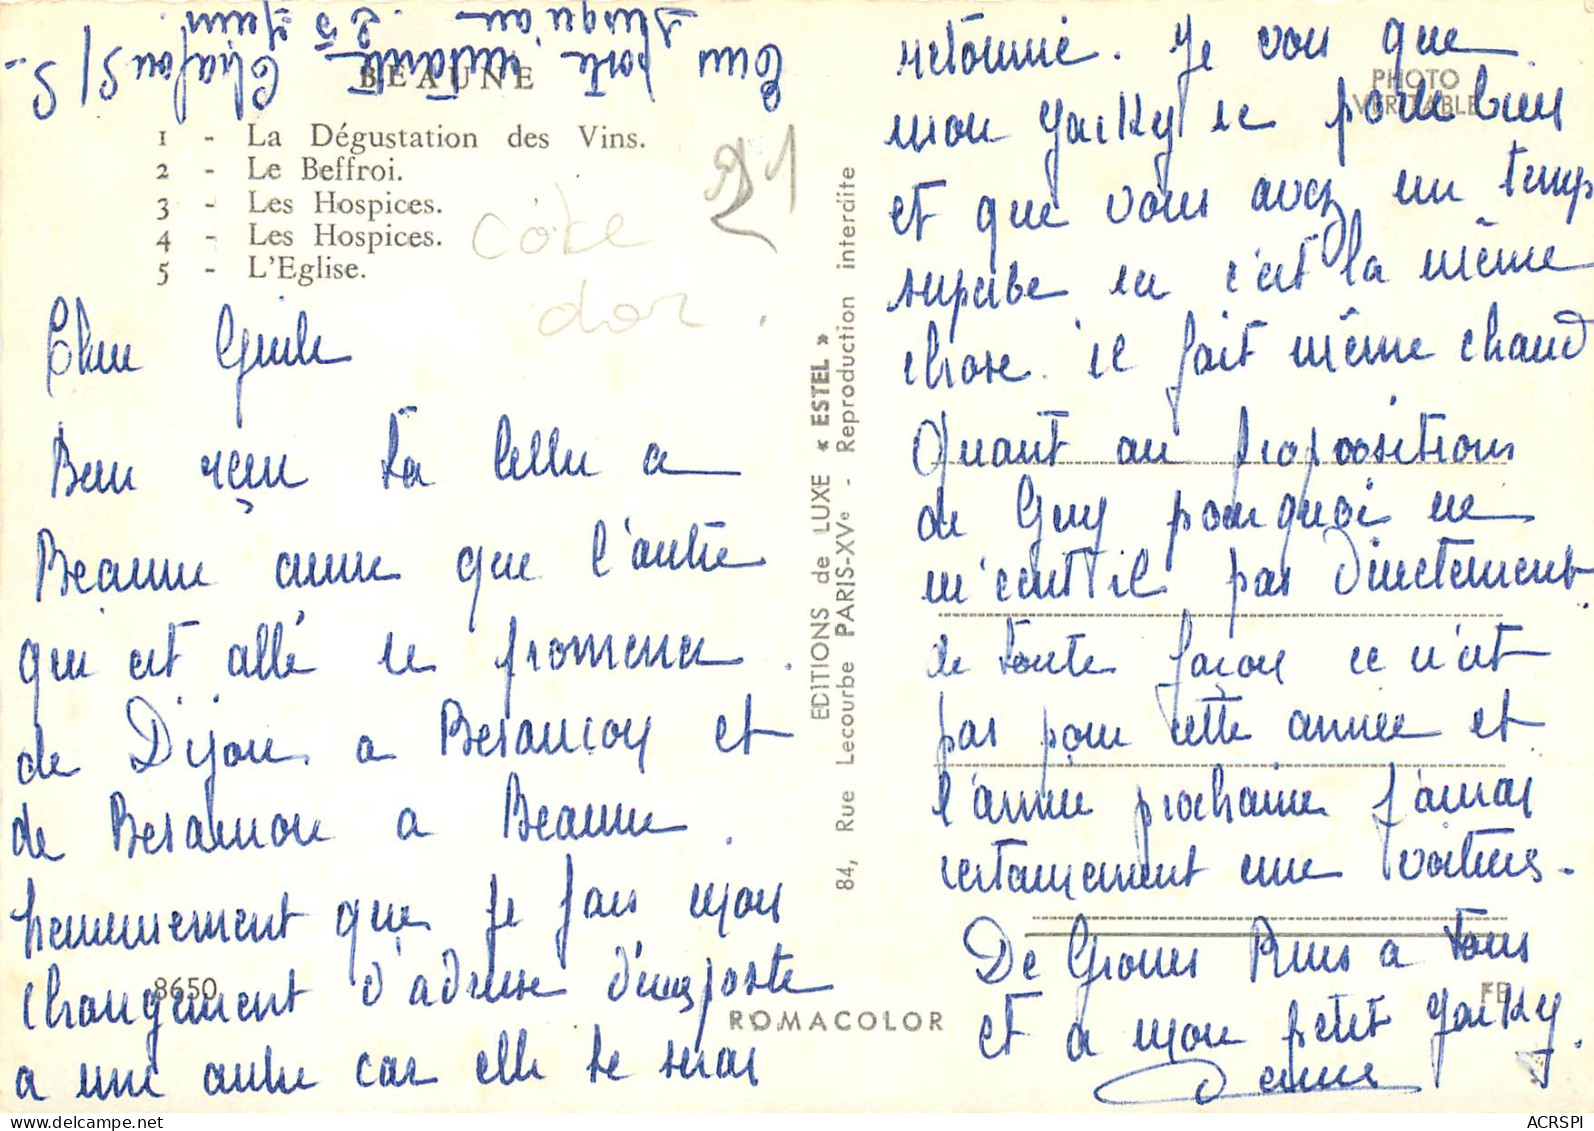 BEAUNE
1 - La Dégustation des Vins.
2 - Le Beffroi.
3 - Les Hospices.
4 - Les Hospices.
5 - L'Eglise.
21
côte
d'or.
Bien reçu ta lettre a
Beaune ainsi que l'autre
qui est allé se promener.
de Dijon a Besançon et
de Besancon a Beaune.
heureusement que je fais mon
changement d'adresse d'une poste
a une autre car elle te serai
retournée. Je vois que
mon Jacky se porte bien
et que vous avez un temps
superbe ici c'est la même
chose. il fait même chaud
Quant au propositions
de Guy pourquoi ne
m'ecrit il pas directement
de toute façon ce n'est
pas pour cette année et
l'année prochaine j'aurai
certainement une voiture.
De Grosses Bises a tous
et a mon petit Jacky.
poste restante
jusqu'au 25 Juin
8650
EDITIONS de LUXE « ESTEL »
84, Rue Lecourbe PARIS-XVe - Reproduction interdite
ROMACOLOR
PHOTO
VERITABLE
ACRSPI